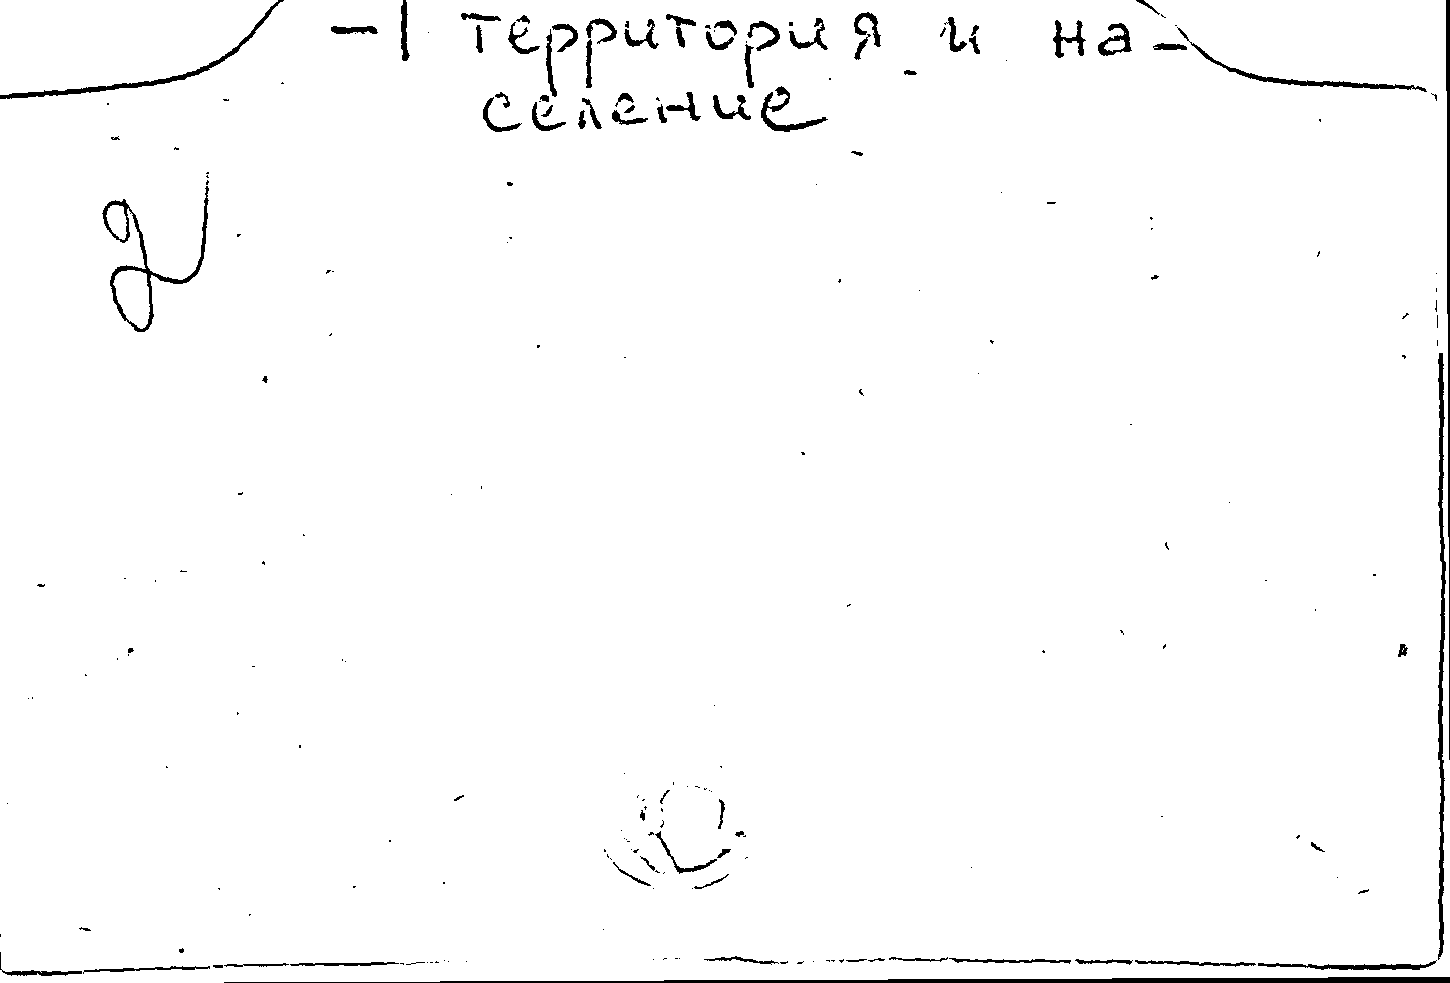 -1 территория и на-
селение